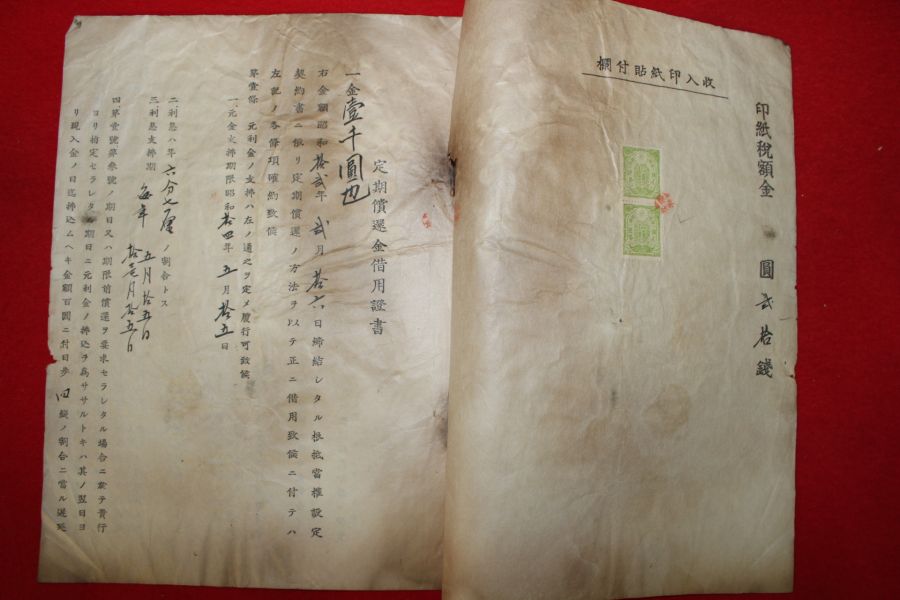 收入印紙貼付欄
印紙稅額金 圓 貳拾錢
定期償還金借用證書
一金壹千圓也
右金額昭和拾貳年貳月拾六日締結シタル根抵當權設定
契約書ニ依リ定期償還ノ方法ヲ以テ正ニ借用致候ニ付テハ
左記ノ各條項確約致候
第壹條 元利金ノ支拂ハ左ノ通之ヲ定メ履行可致候
一、元金支拂期限昭和拾四年五月拾五日
二、利息ハ年六分七厘ノ割合トス
三、利息支拂期 每年 五月拾五日
拾壹月拾五日
四、第壹號第參號ノ期日又ハ期限前償還ヲ要求セラレタル場合ニ於テ貴行
ヨリ指定セラレタル期日ニ元利金ノ拂込ヲ爲ササルトキハ其ノ翌日ヨ
リ現入金ノ日迄拂込ムヘキ金額百圓ニ付日步四錢ノ割合ニ當ル遲延